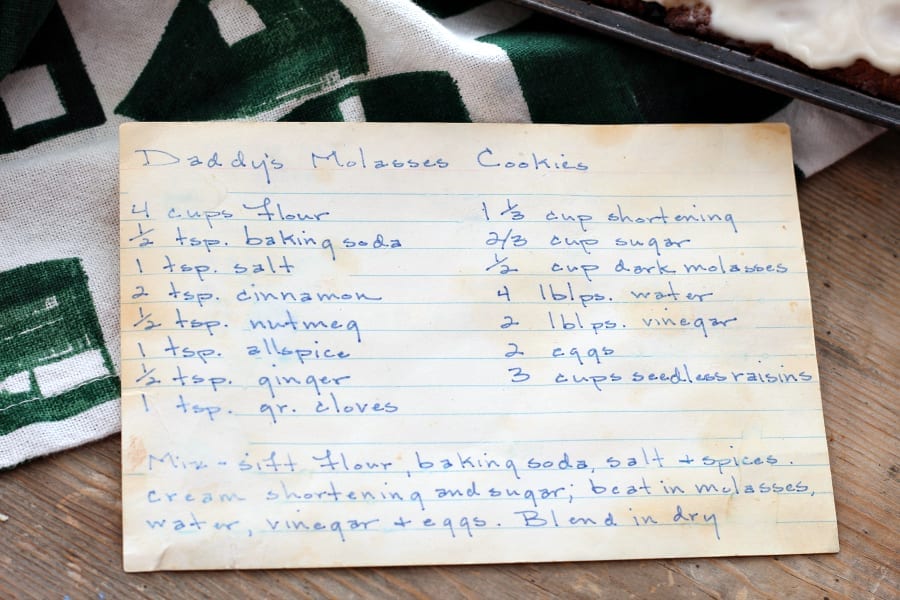 Daddy's Molasses Cookies
4 cups flour
½ tsp. baking soda
1 tsp. salt
2 tsp. cinnamon
½ tsp. nutmeg
1 tsp. allspice
½ tsp. ginger
1 tsp. gr. cloves
1 ⅓ cup shortening
2/3 cup sugar
½ cup dark molasses
4 lblps. water
2 lblps. vinegar
2 eggs
3 cups seedless raisins
Mix - sift flour, baking soda, salt + spices.
cream shortening and sugar; beat in molasses,
water, vinegar + eggs. Blend in dry